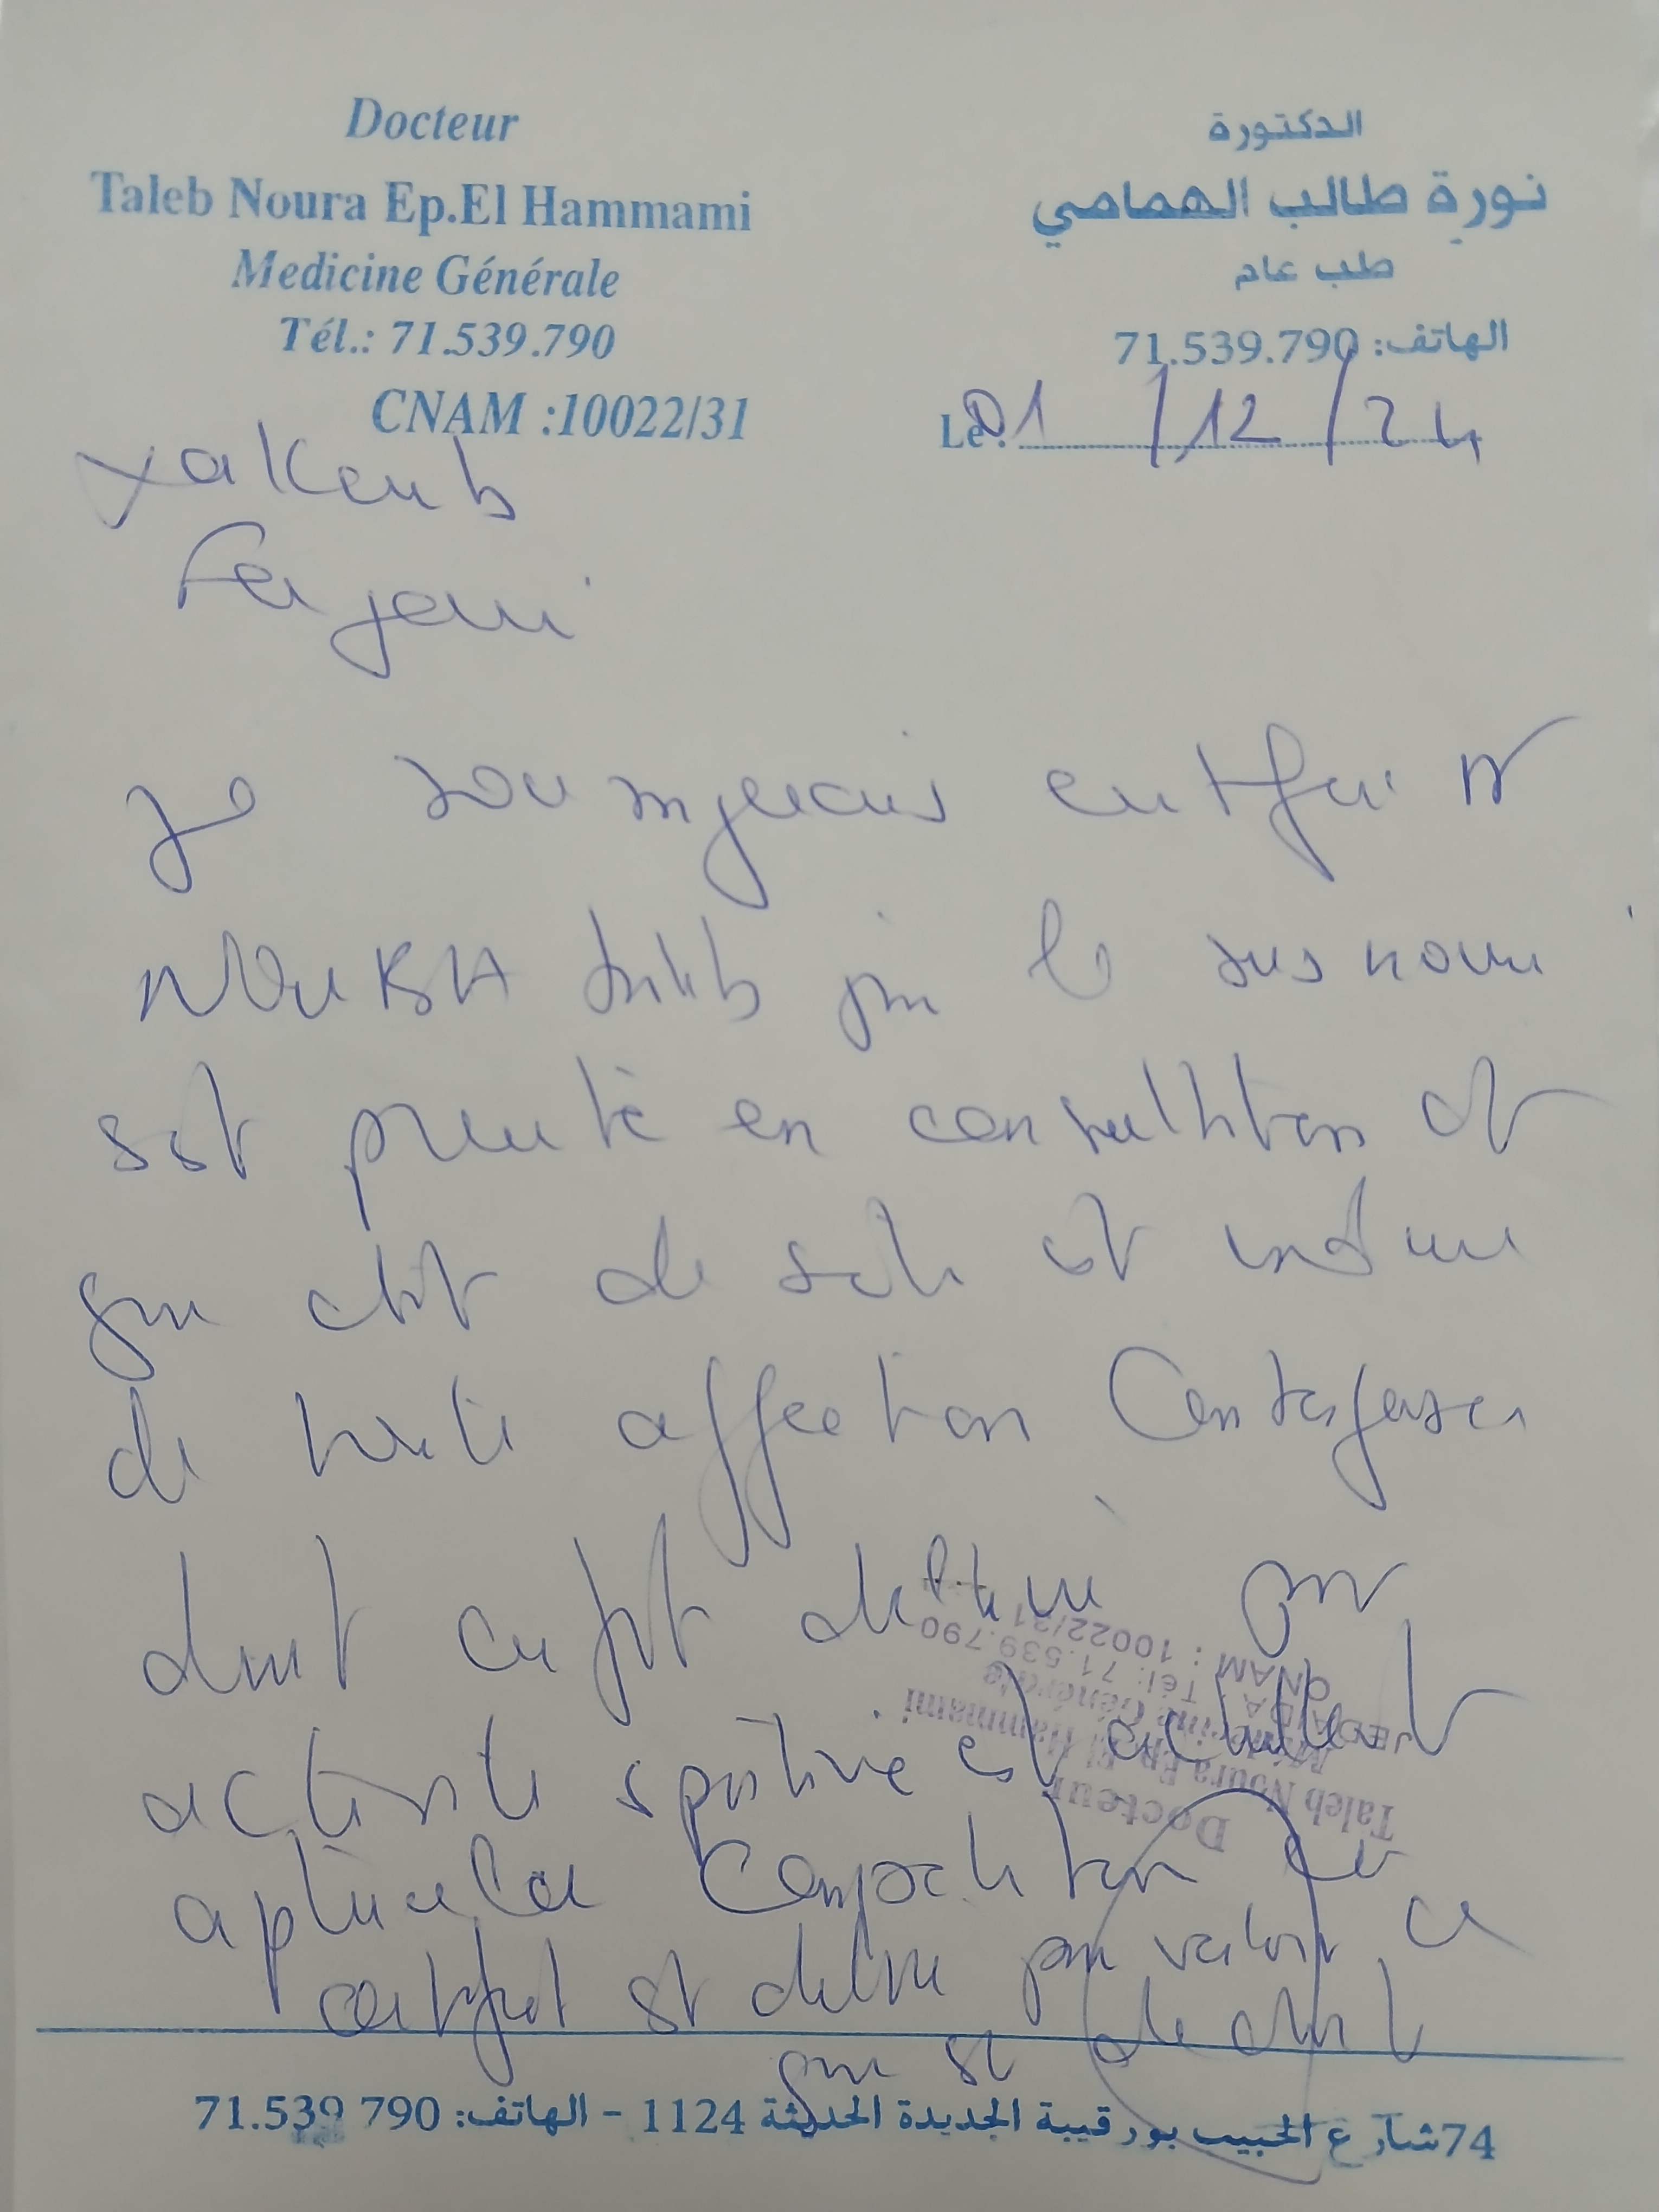 Docteur
Taleb Noura Ep.El Hammami
Medicine Générale
Tél.: 71.539.790
CNAM :10022/31
الدكتورة
نورة طالب الهمامي
طب عام
الهاتف: 71.539.790
Le: 01/12/24
Yakoub
Ferjani
Je soussignais certifier Dr
NOURA Taleb que le sus nommé
s'est présenté en consultation et
que état de santé est indemne
de toute affection Contagieuse
dont
activité sportive est
Compétition
certificat est délivré pour valoir ce
que de droit
Docteur
Taleb Noura Ep. El Hammami
Médecine Générale
Tél: 71.539.790
CNAM : 10022/31
74شارع الحبيب بورقيبة الجديدة الحديثة 1124 - الهاتف: 71.539 790